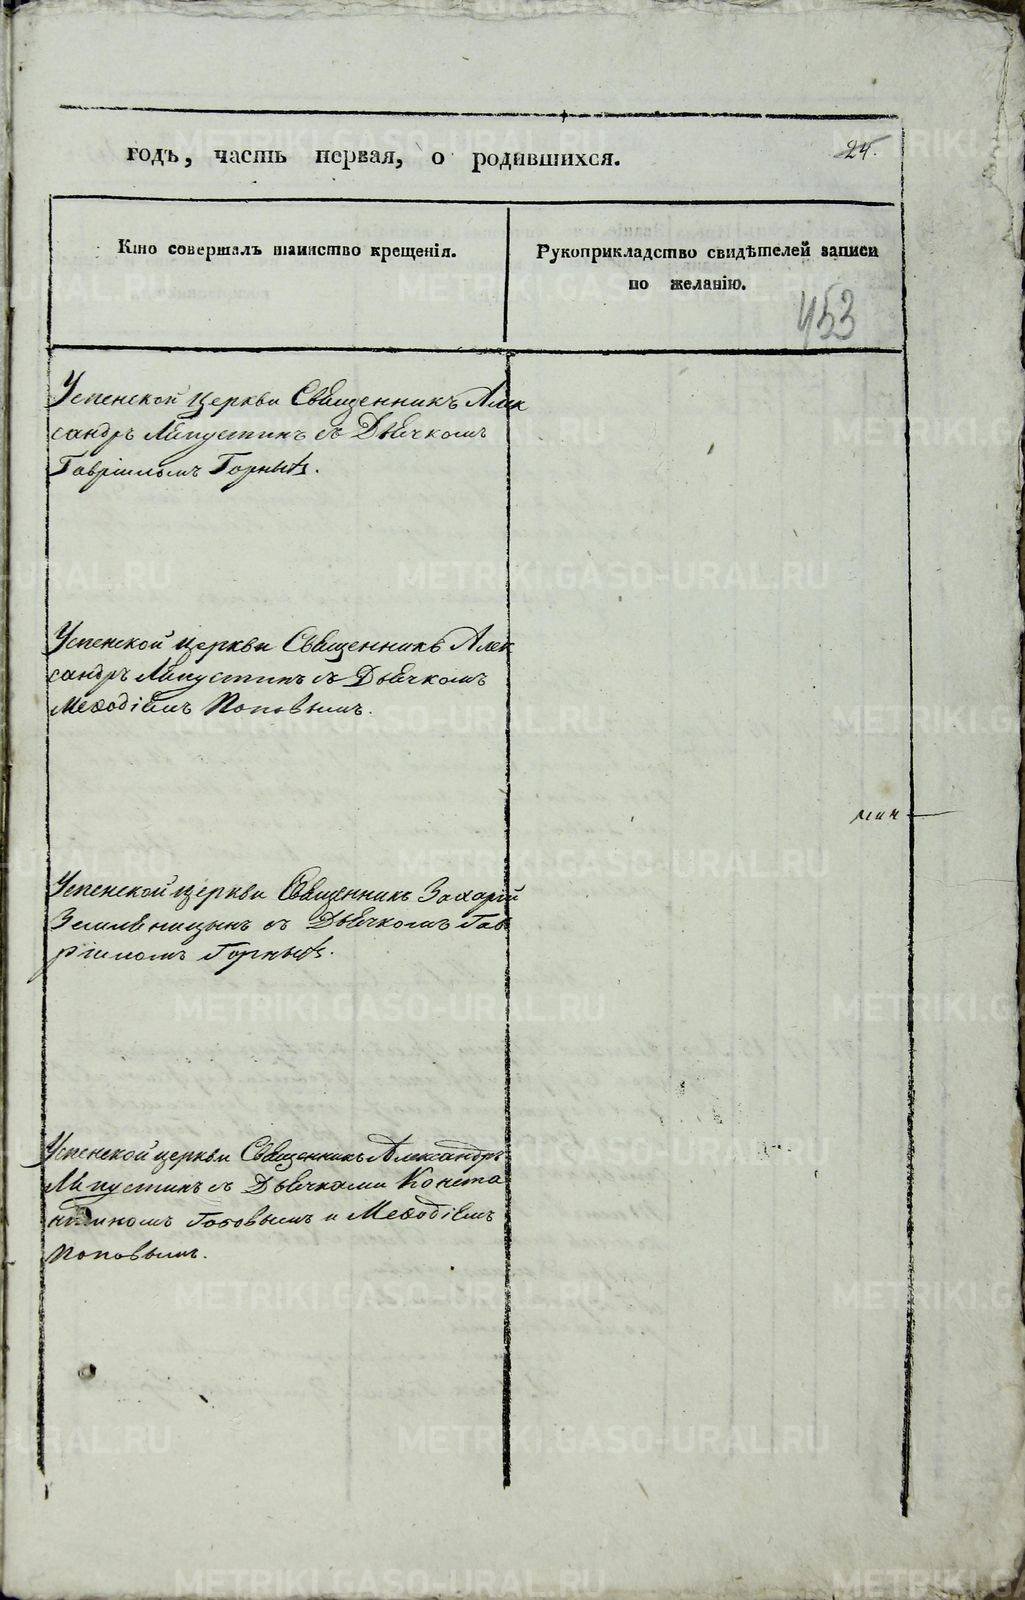 годъ, часть первая, о родившихся.
24.
Кто совершалъ таинство крещенія.
Рукоприкладство свидѣтелей записи
по желанію.
453
Успенской церкви Священникъ Алек
сандръ Липустинъ съ Дьячкомъ
Гавріиломъ Горныхъ.
Успенской церкви Священникъ Алек
сандръ Липустинъ съ Дьячкомъ
Меѳодіемъ Поповымъ.
Успенской церкви Священникъ Захарій
Земляницынъ съ Дьячкомъ Гав
ріиломъ Горныхъ.
Успенской церкви Священникъ Александръ
Липустинъ съ Дьячками Конста
нтиномъ и Меѳодіемъ
Поповымъ.
METRIKI.GASO-URAL.RU